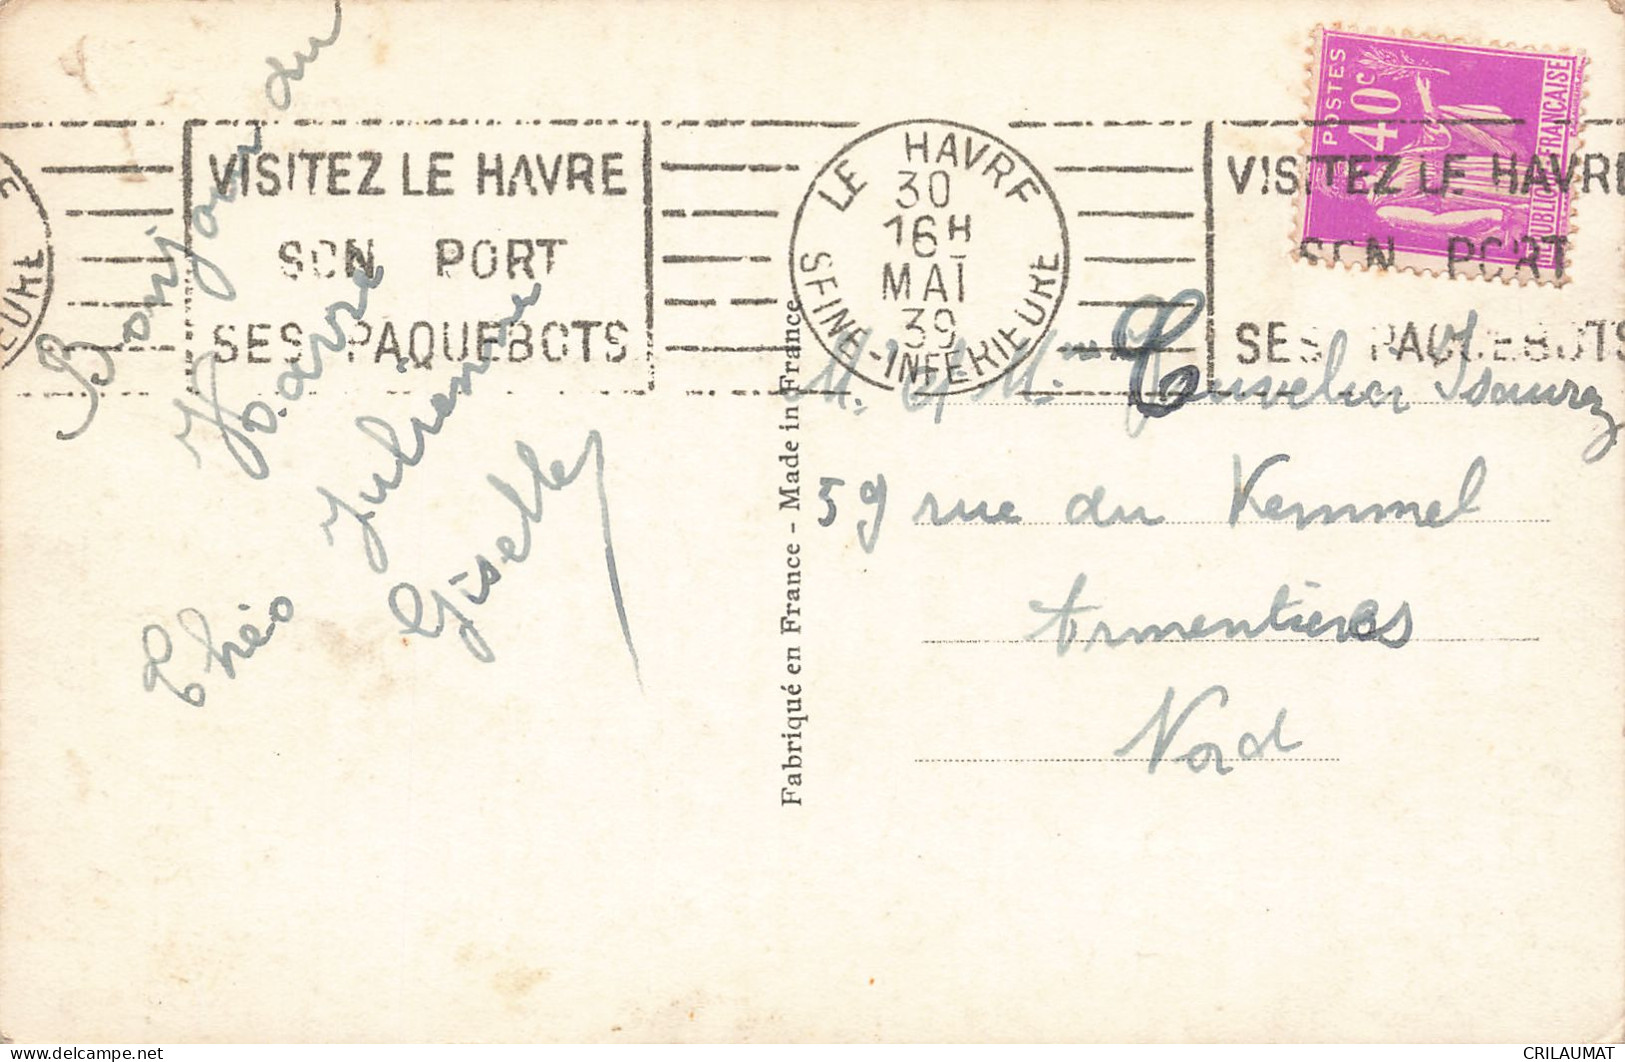 Bonjour du
Havre
Théo Julienne
Giselle
VISITEZ LE HAVRE
SON PORT
SES PAQUEBOTS
LE HAVRE
30
16H
MAI
39
SEINE-INFERIEURE
VISITEZ LE HAVRE
SON PORT
SES PAQUEBOTS
POSTES
40c
REPUBLIQUE FRANÇAISE
Fabriqué en France - Made in France
M. et M.
59 rue du Kemmel
Armentières
Nord
delcampe.net
CRILAUMAT